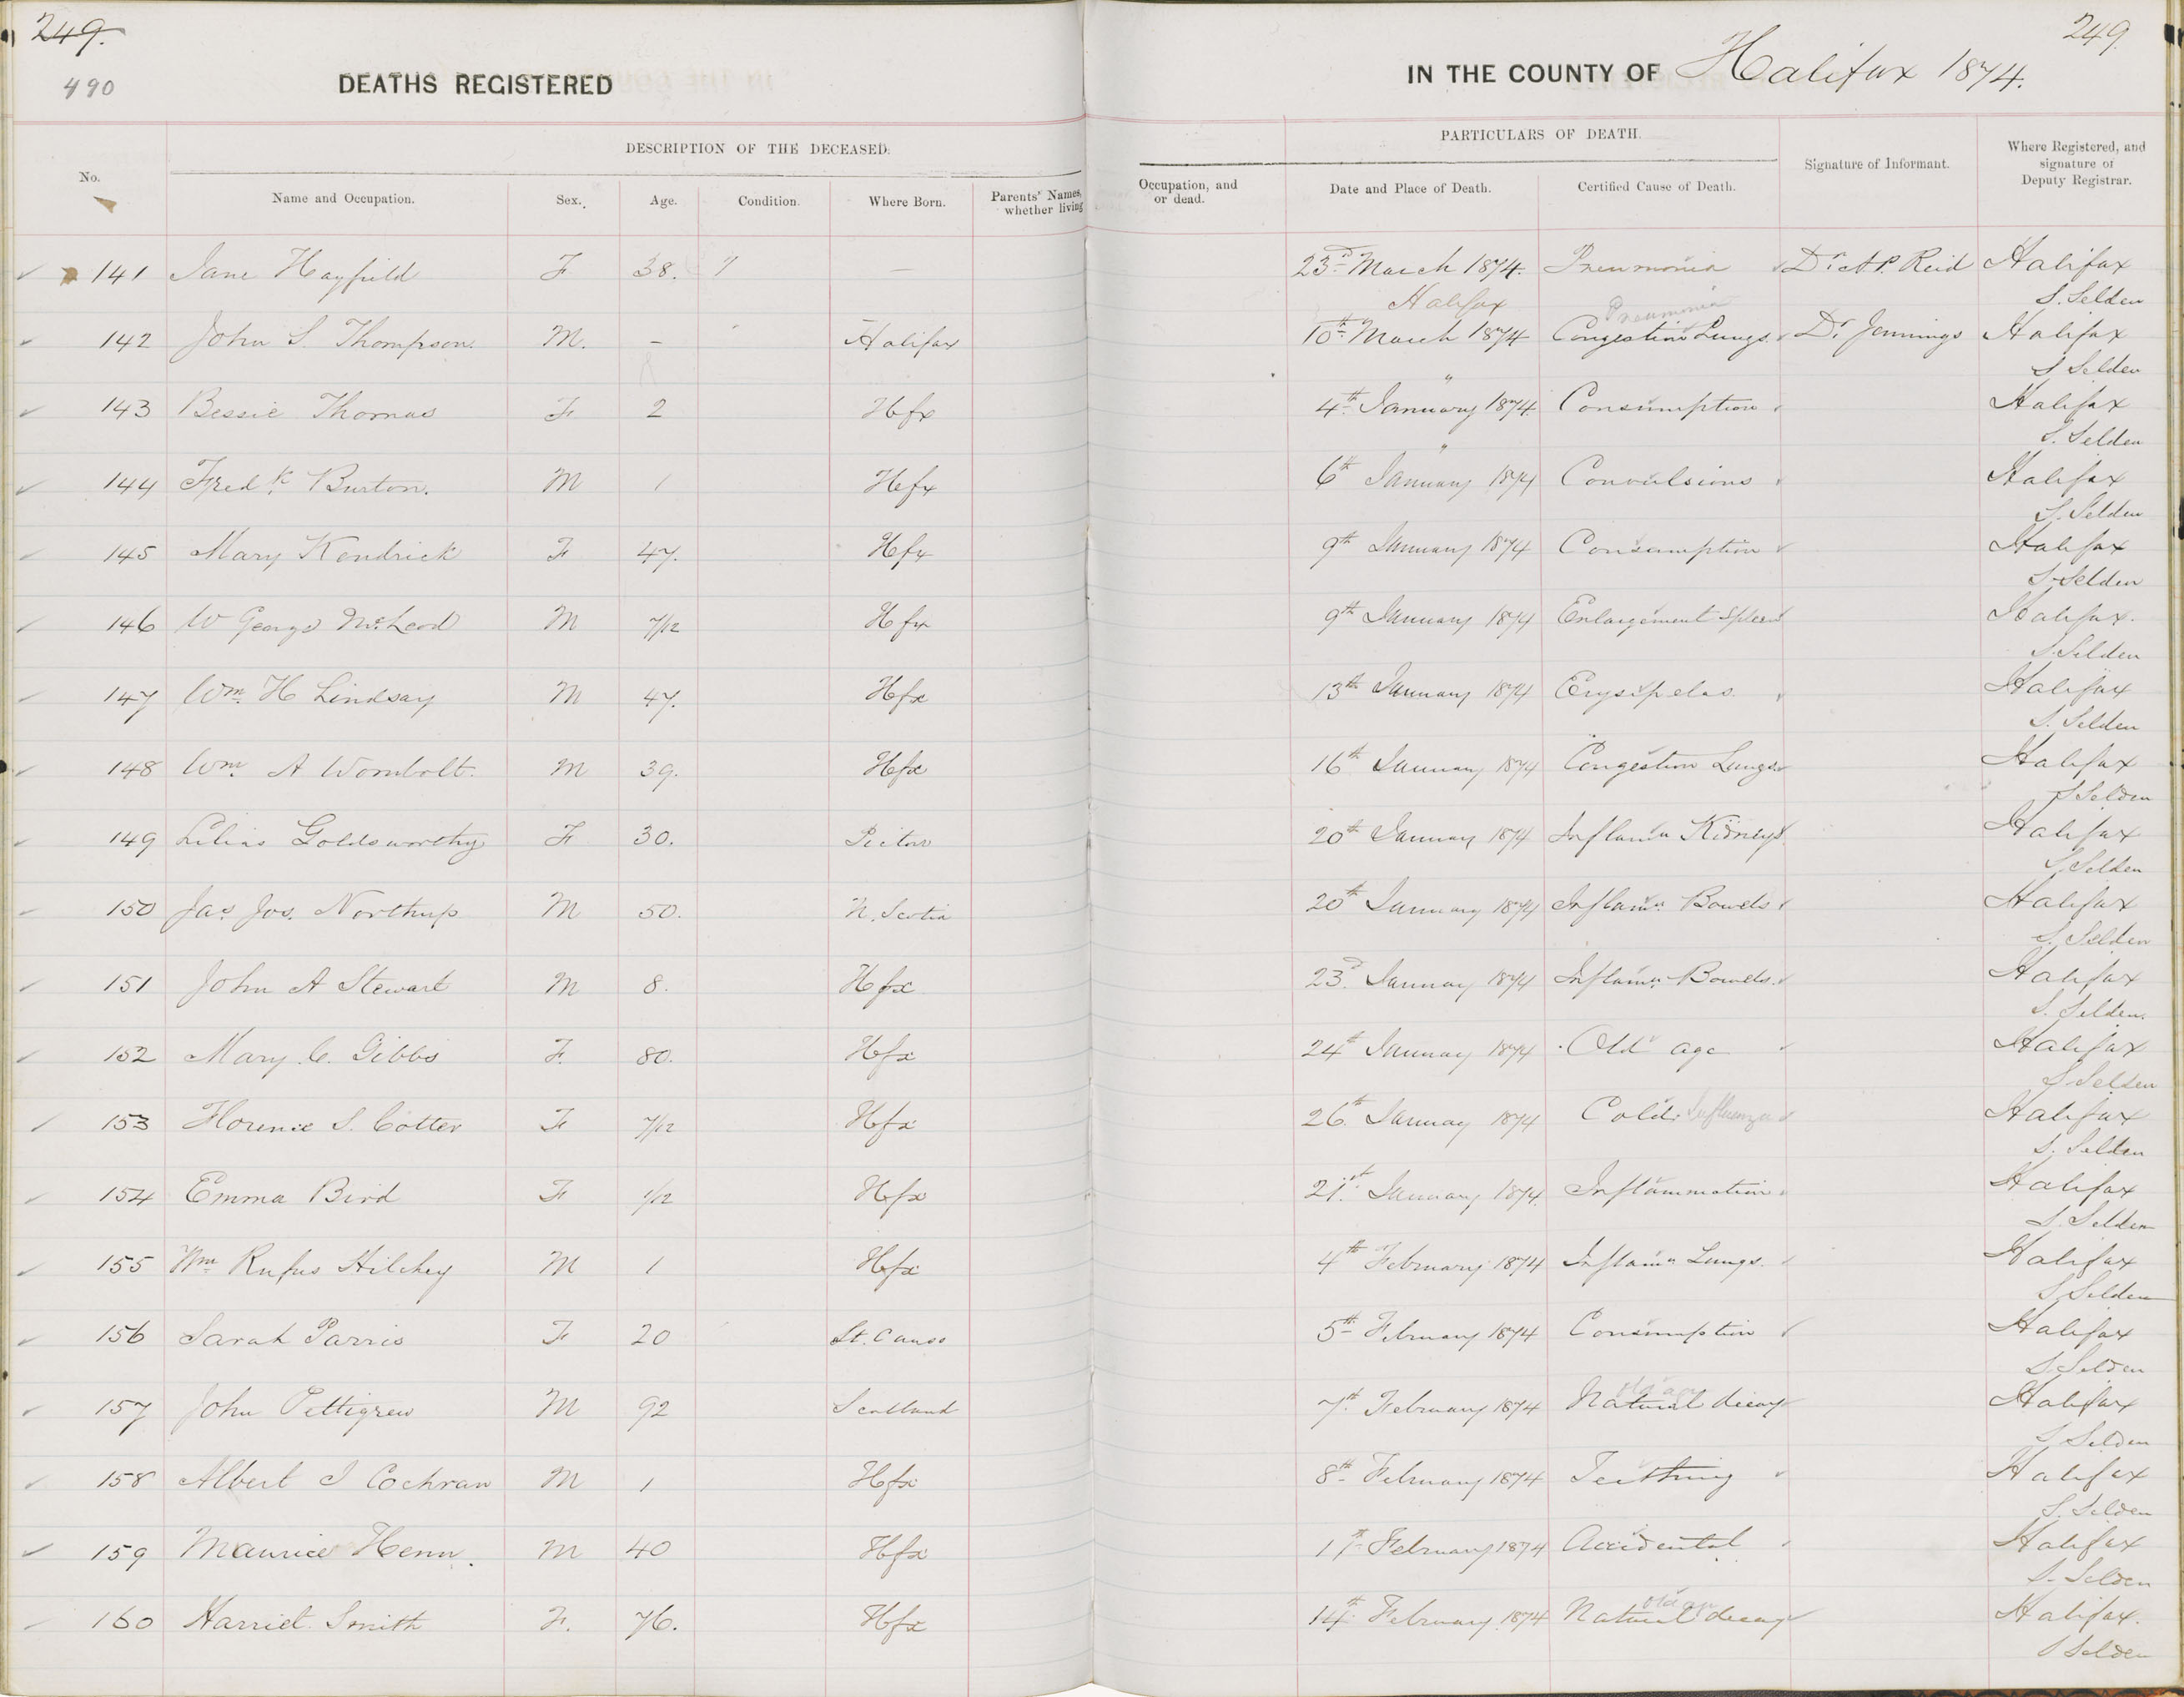 249. 249
490 DEATHS REGISTERED IN THE COUNTY OF Halifax 1874.
DESCRIPTION OF THE DECEASED. PARTICULARS OF DEATH.
No. Name and Occupation. Sex. Age. Condition. Where Born. Parents' Names, whether living Occupation, and or dead. Date and Place of Death. Certified Cause of Death. Signature of Informant. Where Registered, and signature of Deputy Registrar.
141 Jane Hayfield F 38. — 23rd March 1874. Pneumonia Dr. A.P. Reid Halifax
Halifax Pneumonia S. Selden
142 John S. Thompson. M. – Halifax 10th March 1874 Congestion Lungs. Dr Jennings Halifax
" S Selden
143 Bessie Thomas F 2 Hfx 4th January 1874. Consumption Halifax
" S. Selden
144 Fredk Burton. M 1 Hfx 6th January 1874 Convulsions Halifax
S. Selden
145 Mary Kendrick F 47. Hfx 9th January 1874 Consumption Halifax
S Selden
146 W George McLeod M 7/12 Hfx 9th January 1874 Enlargement Spleen Halifax.
S. Selden
147 Wm. H Lindsay M 47. Hfx 13th January 1874 Erysipelas. Halifax
S. Selden
148 Wm. A Wombolt. M 39. Hfx 16th January 1874 Congestion Lungs Halifax
S Selden
149 Lilias Goldsworthy F 30. Pictou 20th January 1874 Inflam'n Kidneys Halifax
S Selden
150 Jas. Jos. Northup M 50. N. Scotia 20th January 1874 Inflam'n Bowels Halifax
S. Selden
151 John A Stewart M 8. Hfx 23d January 1874 Inflam'n Bowels. Halifax
S. Selden.
152 Mary C. Gibbs F. 80. Hfx 24th January 1874 Old age Halifax
S Selden
153 Florence S. Cotter F 7/12 Hfx 26th January 1874 Cold. Influenza Halifax
S. Selden
154 Emma Bird F 1/12 Hfx 21st January 1874. Inflammation Halifax
S. Selden
155 Wm Rufus Hilchey M 1 Hfx 4th February 1874 Inflam'n Lungs. Halifax
S Selden
156 Sarah Parris F 20 St. Canso 5th February 1874 Consumption Halifax
S Selden
old age
157 John Pettigrew M 92 Scotland 7th February 1874 Natural decay Halifax
S Selden
158 Albert J Cochran M 1 Hfx 8th February 1874 Teething Halifax
S. Selden
159 Maurice Henn. M 40 Hfx February 1874 Accidental Halifax
S. Selden
old age
160 Harriet Smith F. 76. Hfx 14th February 1874 Natural decay Halifax.
S Selden